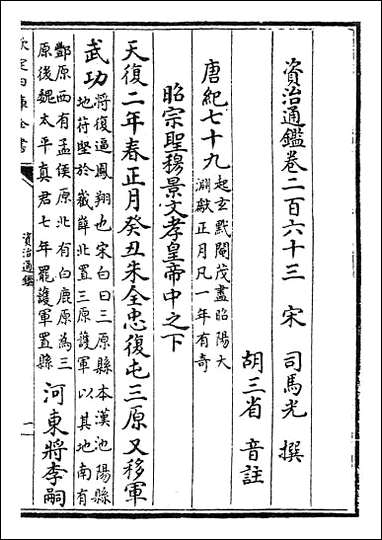 資治通鑑卷二百六十三 宋 司馬光 撰
胡三省 音註
唐紀七十九 起玄黓閹茂盡昭陽大
淵獻正月凡一年有奇
昭宗聖穆景文孝皇帝中之下
天復二年春正月癸丑朱全忠復屯三原又移軍
武功 將復逼鳳翔也宋白曰三原縣本漢池陽縣
地苻堅於嶻嶭北置三原護軍以其地南有
酆原西有孟侯原北有白鹿原為三
原後魏太平真君七年罷護軍置縣 河東將李嗣
欽定四庫全書
資治通鑑
一